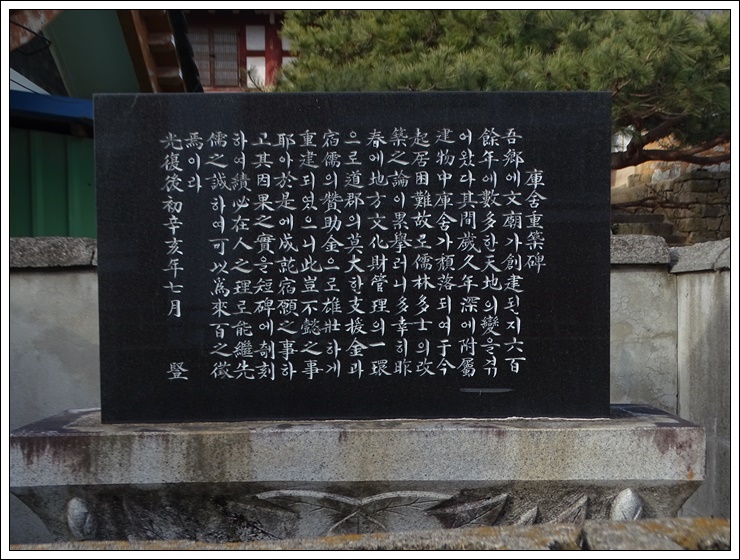 庫舍重築碑
吾鄕에文廟가創建된지六百
餘年에數多한天地의變을겪
어왔다其間歲久年深에附屬
建物中庫舍가頹落되여于今
起居困難故로儒林多士의改
築之論이累擧러니多幸히昨
春에地方文化財管理의一環
으로道郡의莫大한支援金과
宿儒의贊助金으로雄壯하게
重建되였으니此豈不懿之事
耶아於是에成訖宿願之事하
고其因果之實을短碑에刻
하여績必在人之理로能繼先
儒之誠하여可以爲來百之徵
焉이라
光復後初辛亥年七月 竪